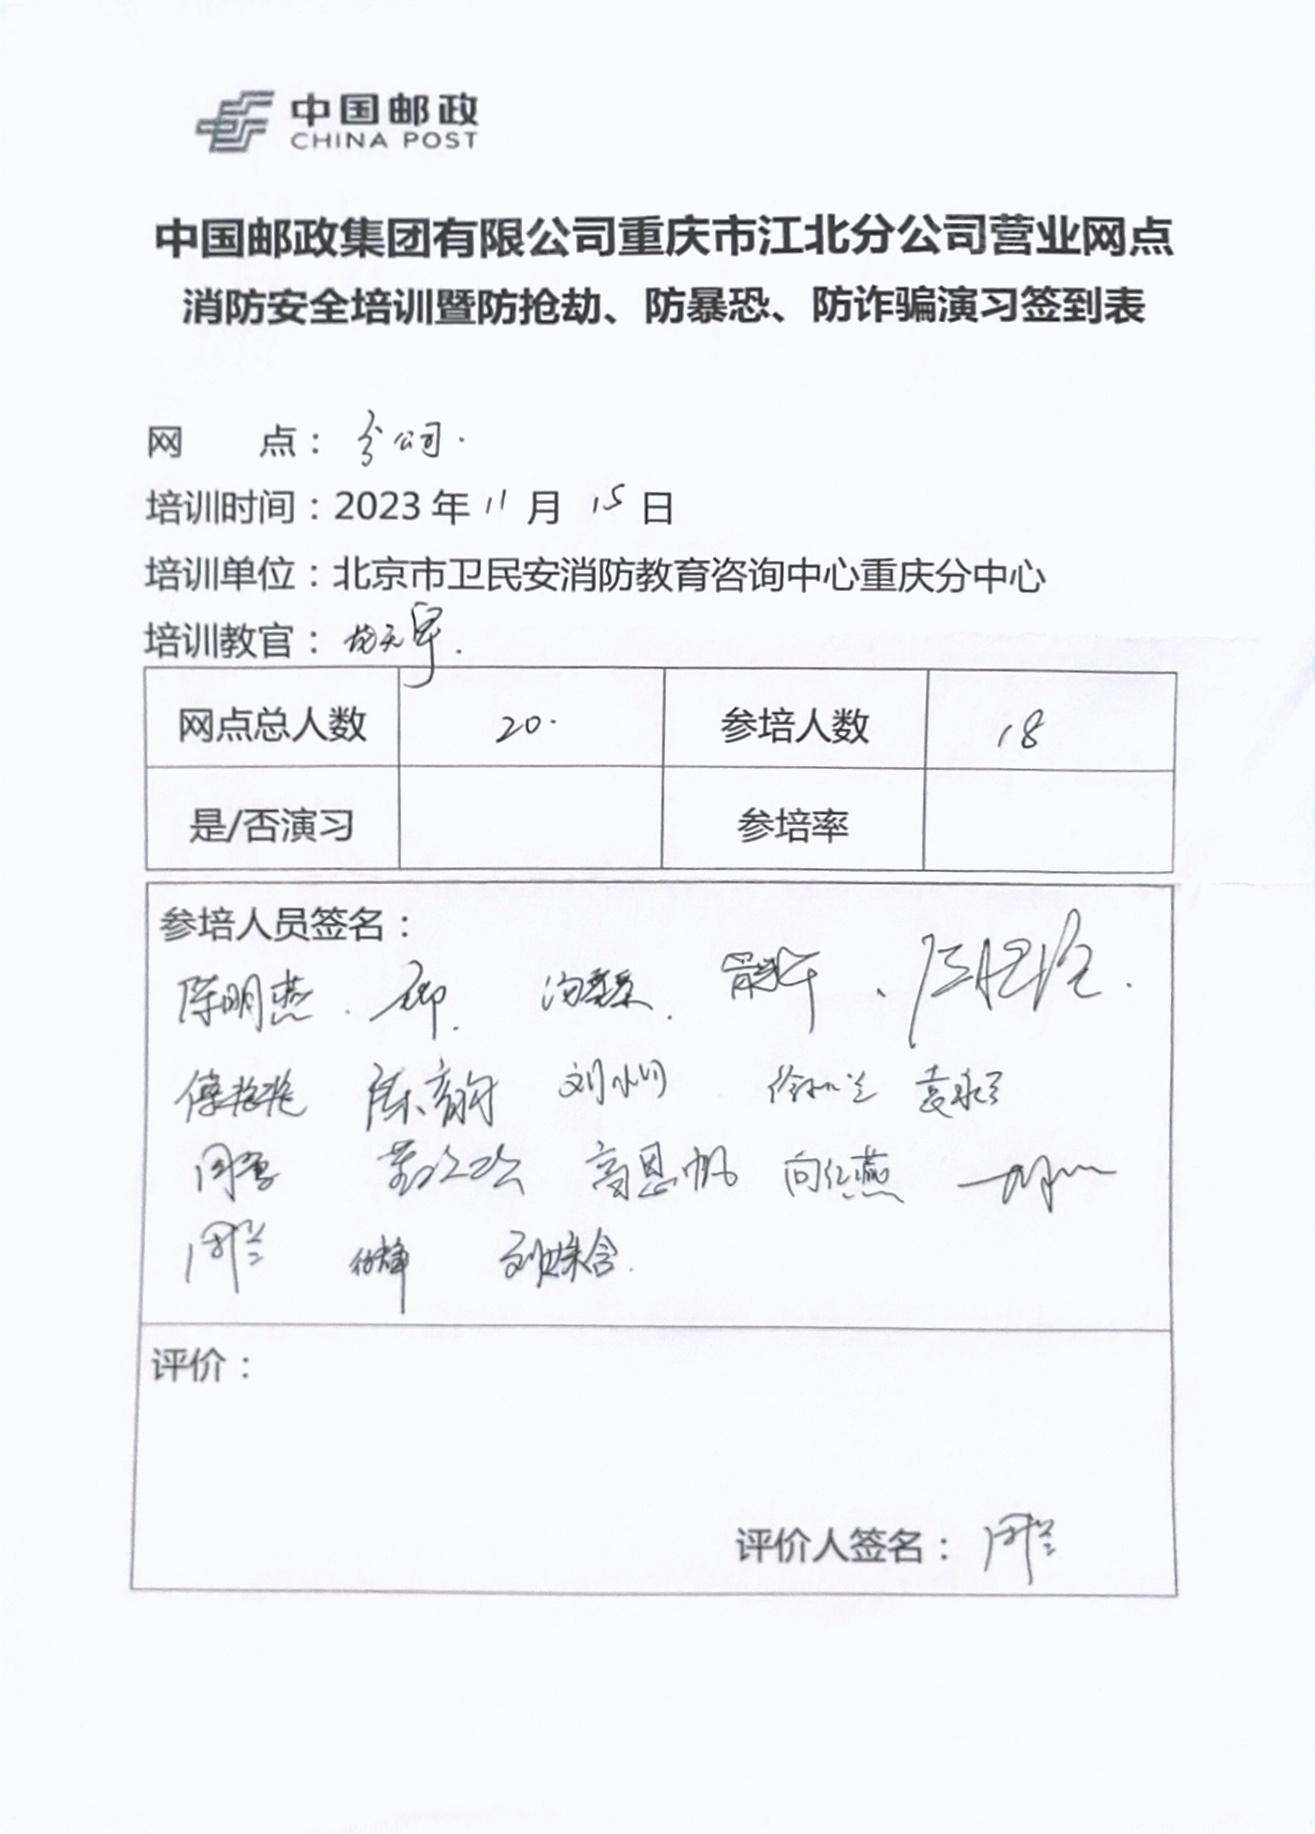 中国邮政
CHINA POST
中国邮政集团有限公司重庆市江北分公司营业网点
消防安全培训暨防抢劫、防暴恐、防诈骗演习签到表
网 点：分公司.
培训时间：2023 年 11 月 15 日
培训单位：北京市卫民安消防教育咨询中心重庆分中心
培训教官：
网点总人数 20. 参培人数 18
是/否演习 参培率
参培人员签名：
陈明燕.
陈韵 刘小川
高恩帆 向仁燕
周兰 刘姝含.
评价：
评价人签名：周兰